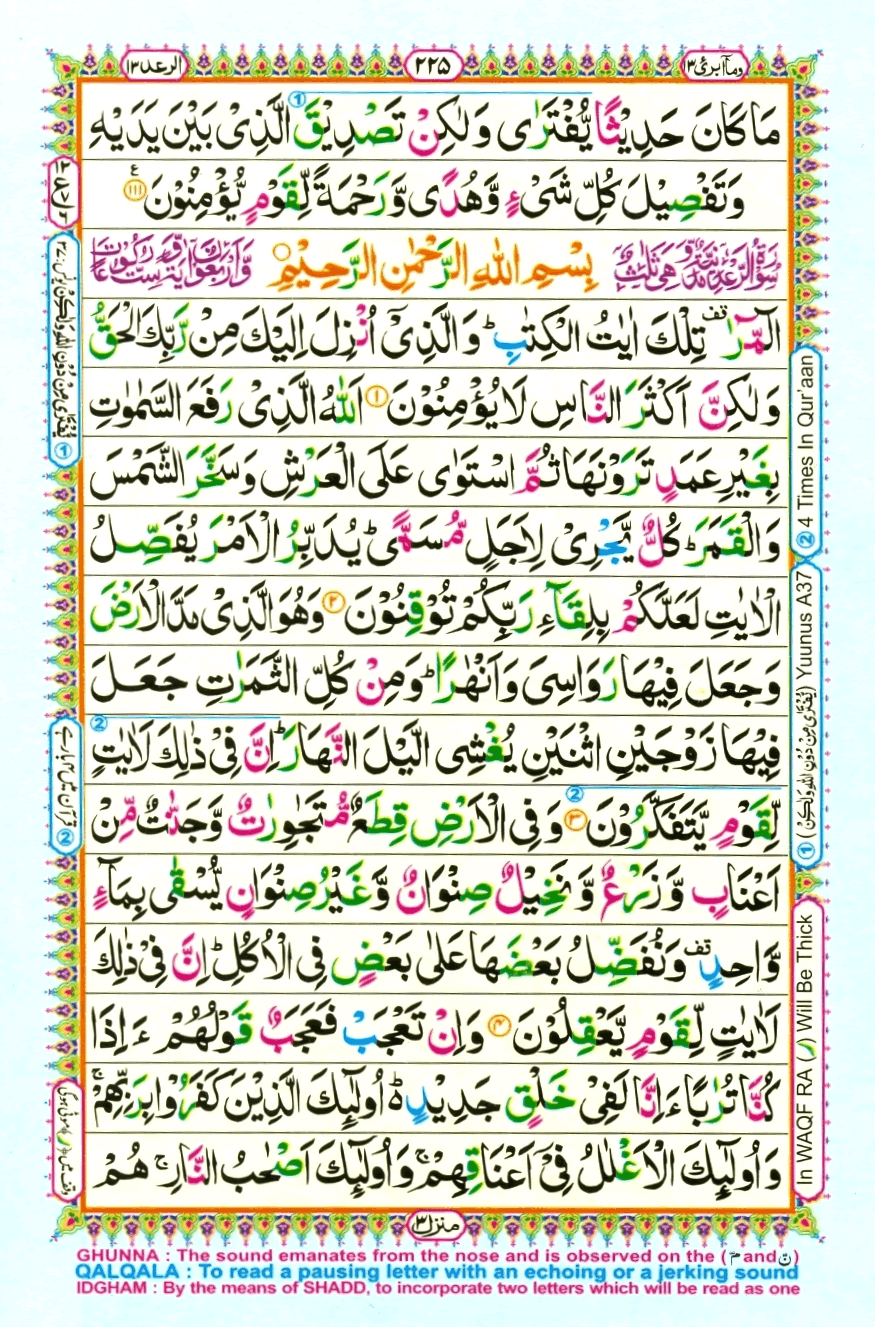 الرعد ١٣
٢٢٥
وما ابرئ ١٣
مَا كَانَ حَدِيْثًا يُّفْتَرٰى وَ لٰكِنْ تَصْدِيْقَ الَّذِىْ بَيْنَ يَدَيْهِ
وَتَفْصِيْلَ كُلِّ شَىْءٍ وَّهُدًى وَّرَحْمَةً لِّقَوْمٍ يُّؤْمِنُوْنَ ۧ ﴿١١١﴾
سُوْرَةُ الرَّعْدِ مَدَنِيَّةٌ وَّهِىَ ثَلٰثٌ بِسْمِ اللهِ الرَّحْمٰنِ الرَّحِيْمِ وَّاَرْبَعُوْنَ اٰيَةً وَّسِتُّ رُكُوْعَاتٍ
الٓمّٓرٰ ۟قف تِلْكَ اٰيٰتُ الْكِتٰبِ ؕ وَالَّذِىْۤ اُنْزِلَ اِلَيْكَ مِنْ رَّبِّكَ الْحَقُّ
وَلٰكِنَّ اَكْثَرَ النَّاسِ لَا يُؤْمِنُوْنَ ﴿١﴾ اَللهُ الَّذِىْ رَفَعَ السَّمٰوٰتِ
بِغَيْرِ عَمَدٍ تَرَوْنَهَا ثُمَّ اسْتَوٰى عَلَى الْعَرْشِ وَسَخَّرَ الشَّمْسَ
وَالْقَمَرَ ؕ كُلٌّ يَّجْرِىْ لِاَجَلٍ مُّسَمًّى ؕ يُدَبِّرُ الْاَمْرَ يُفَصِّلُ
الْاٰيٰتِ لَعَلَّكُمْ بِلِقَآءِ رَبِّكُمْ تُوْقِنُوْنَ ﴿٢﴾ وَهُوَ الَّذِىْ مَدَّ الْاَرْضَ
وَجَعَلَ فِيْهَا رَوَاسِىَ وَاَنْهٰرًا ؕ وَمِنْ كُلِّ الثَّمَرٰتِ جَعَلَ
فِيْهَا زَوْجَيْنِ اثْنَيْنِ يُغْشِى الَّيْلَ النَّهَارَ ؕ اِنَّ فِىْ ذٰلِكَ لَاٰيٰتٍ
لِّقَوْمٍ يَّتَفَكَّرُوْنَ ﴿٣﴾ وَفِى الْاَرْضِ قِطَعٌ مُّتَجٰوِرٰتٌ وَّجَنّٰتٌ مِّنْ
اَعْنَابٍ وَّزَرْعٌ وَّنَخِيْلٌ صِنْوَانٌ وَّغَيْرُ صِنْوَانٍ يُّسْقٰى بِمَآءٍ
وَّاحِدٍ قف وَنُفَضِّلُ بَعْضَهَا عَلٰى بَعْضٍ فِى الْاُكُلِ ؕ اِنَّ فِىْ ذٰلِكَ
لَاٰيٰتٍ لِّقَوْمٍ يَّعْقِلُوْنَ ﴿٤﴾ وَاِنْ تَعْجَبْ فَعَجَبٌ قَوْلُهُمْ ءَاِذَا
كُنَّا تُرٰبًا ءَاِنَّا لَفِىْ خَلْقٍ جَدِيْدٍ ۬ؕ اُولٰٓئِكَ الَّذِيْنَ كَفَرُوْا بِرَبِّهِمْ ۚ
وَاُولٰٓئِكَ الْاَغْلٰلُ فِىْۤ اَعْنَاقِهِمْ ۚ وَاُولٰٓئِكَ اَصْحٰبُ النَّارِ ۚ هُمْ
منزل ٣
② 4 Times In Qur'aan
① (يُّفْتَرٰى مِنْ دُوْنِ اللهِ وَلٰكِنْ) Yuunus A37
In WAQF RA (ر) Will Be Thick
① يُّفْتَرٰى مِنْ دُوْنِ اللهِ وَلٰكِنْ يونس ٣٧
② قرآن میں ۴ بار ہے
وقف میں (ر) موٹی ہوگی
GHUNNA : The sound emanates from the nose and is observed on the (مّ and نّ)
QALQALA : To read a pausing letter with an echoing or a jerking sound
IDGHAM : By the means of SHADD, to incorporate two letters which will be read as one